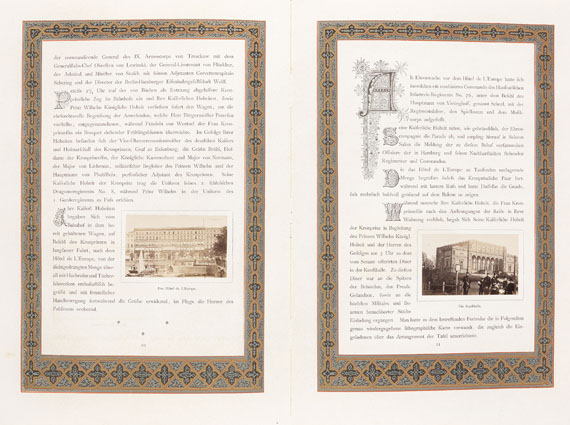 der commandirende General des IX. Armeecorps von Tresckow mit dem
Generalstabs-Chef Obersten von Lesczinski, der General-Lieutenant von
der Admiral und
Schüring und der Director der Berlin-Hamburger Eisenbahngesellschaft Wolff.
Uhr traf der von Büchen als Extrazug abgelassene Kron-
prinzliche Zug im Bahnhofe ein und Ihre Kaiserlichen Hoheiten, sowie
Prinz Wilhelm Königliche Hoheit verliessen sofort den Wagen, um die
ehrfurchtsvolle Begrüssung der Anwesenden, welche Herr Bürgermeister Petersen
vorstellte, entgegenzunehmen, während Fräulein von der Frau Kron-
prinzessin ein Bouquet duftender Frühlingsblumen überreichte. Im Gefolge Ihrer
Hoheiten befanden sich der Vice-Oberceremonienmeister des deutschen Kaisers
und Hofmarschall des Kronprinzen, Graf zu Eulenburg; die Gräfin Brühl, Hof-
dame der Kronprinzessin, der Königliche Kammerherr und Major von Normann,
der Major von Liebenau, militärischer Begleiter des Prinzen Wilhelm und der
Hauptmann von Pfuhlstein, persönlicher Adjutant des Kronprinzen. Seine
Kaiserliche Hoheit der Kronprinz trug die Uniform seines 2. schlesischen
Dragonerregiments No. 8, während Prinz Wilhelm in der Uniform des
Garderegiments zu Fuss erschien.
Ihre Kaiserl. Hoheiten
begaben Sich vom
Bahnhof in dem be-
reit gehaltenen Wagen, auf
Befehl des Kronprinzen in
langsamer Fahrt, nach dem
Hôtel de L'Europe, von der
dichtgedrängten Menge über-
all mit Hochrufen und Tücher-
schwenken enthusiastisch be-
grüsst und mit freundlicher
Handbewegung fortwährend die Grüsse erwidernd, im Fluge die Herzen des
Publicums erobernd.
Das Hôtel de L'Europe.
* * *
10
Als Ehrenwache vor dem Hôtel de L'Europe hatte sich
inzwischen ein combinirtes Commando des Hanseatischen
Infanterie-Regiments No. 76, unter dem Befehl des
Hauptmann von Vietinghoff, genannt Scheel, mit der
Regimentsfahne, den Spielleuten und dem Musik-
corps aufgestellt.
Seine Kaiserliche Hoheit nahm, wie gebräuchlich, der Ehren-
compagnie die Parade ab, und empfing hierauf in Seinem
Salon die Meldung der zu dieser Zufahrt befohlenen
Officiere der in Hamburg und seinen Nachbarstädten liegenden
Regimenter und Commandos.
Die das Hôtel de L'Europe zu Tausenden umlagernde
Menge begrüsste lebhaft das Kronprinzliche Paar hier
während mit lautem Rufe und hatte Dasselbe die Gnade,
sich mehrfach huldvoll grüssend auf dem Balcon zu zeigen.
Während nunmehr Ihre Kaiserliche Hoheit, die Frau Kron-
prinzessin nach den Anstrengungen der Reise in Ihrer
Wohnung verblieb, begab Sich Seine Kaiserliche Hoheit
der Kronprinz in Begleitung
des Prinzen Wilhelm Königl.
Hoheit und der Herren des
Gefolges um 5 Uhr zu dem
vom Senate offerirten Diner
in der Kunsthalle. Zu diesem
Diner war an die Spitzen
der Behörden, den Preuss.
Gesandten, sowie an die
höchsten Militairs und Be-
amten benachbarter Städte
Einladung ergangen. Man hatte zu dem betreffenden Formular die in Folgendem
genau wiedergegebene lithographische Karte verwandt, die zugleich die Ein-
geladenen über das Arrangement der Tafel unterrichtete.
Die Kunsthalle.
11